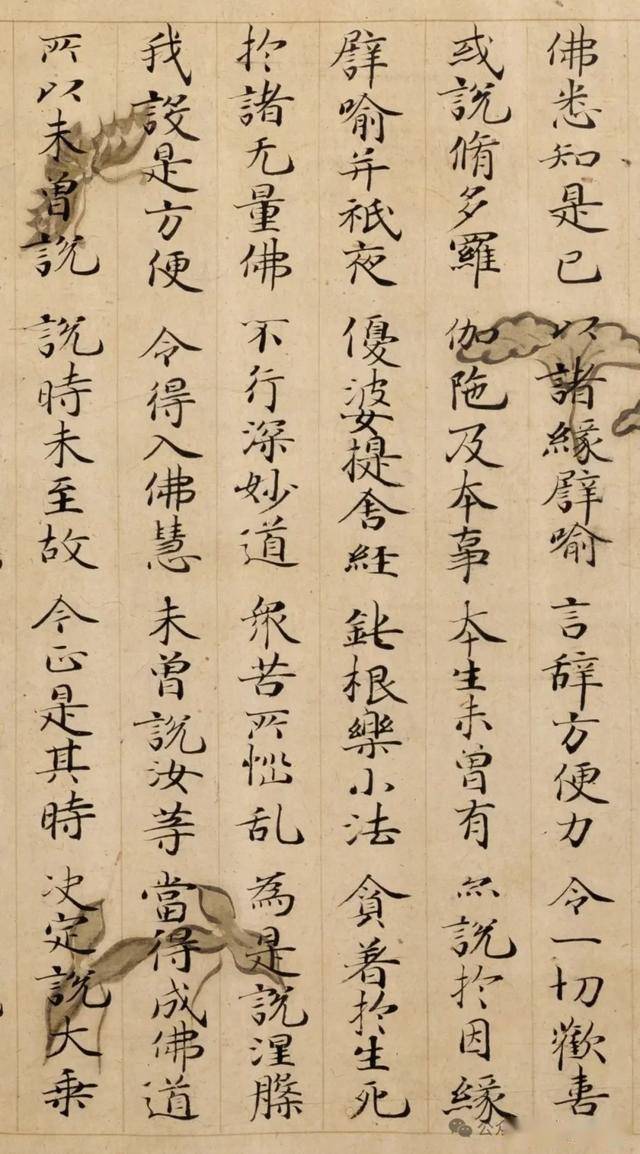 佛悉知是已 以諸緣譬喻 言辞方便力 令一切歡喜
或說脩多羅 伽陁及本事 本生未曾有 亦說扵因緣
譬喻并祇夜 優婆提舍経 鈍根樂小法 貪著扵生死
扵諸无量佛 不行深妙道 衆苦所惱乱 為是說涅槃
我設是方便 令得入佛慧 未曾說汝等 當得成佛道
所以未曾說 說時未至故 今正是其時 决定說大乗